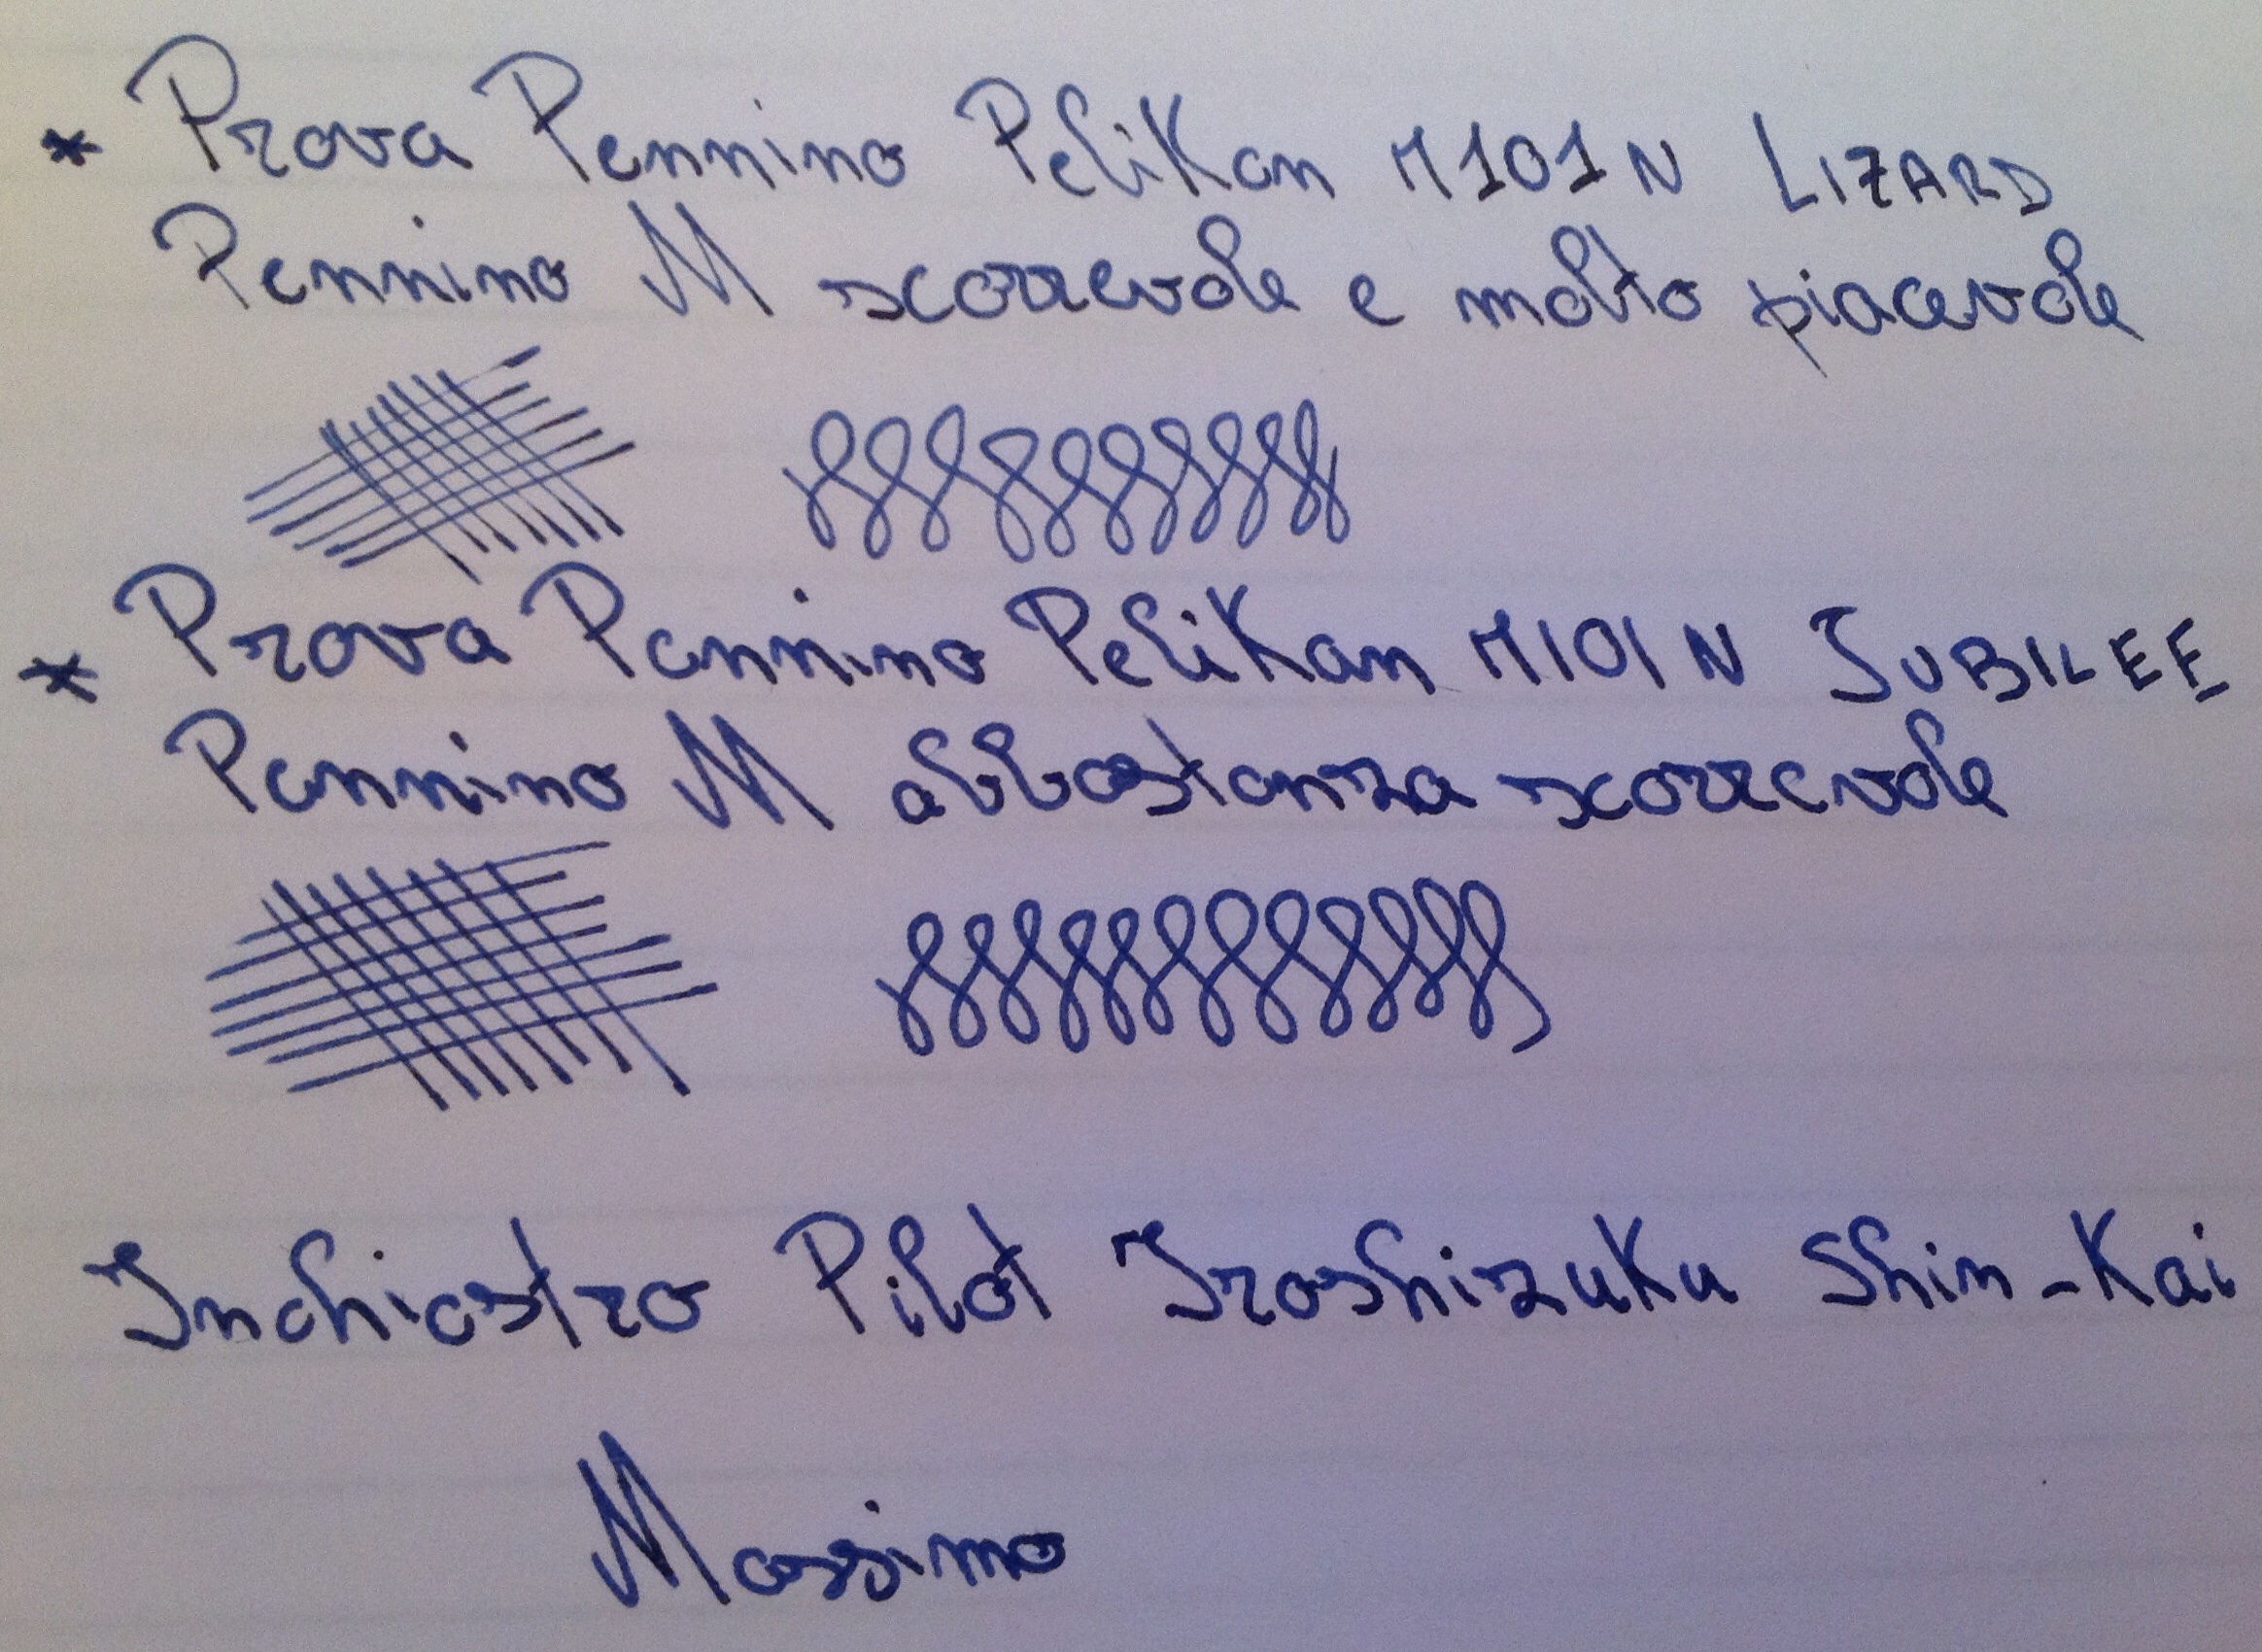 * Prova Pennino Pelikan M101N LIZARD
Pennino M scorrevole e molto piacevole
* Prova Pennino Pelikan M101N JUBILEE
Pennino M abbastanza scorrevole
Inchiostro Pilot Iroshizuku Shin-Kai
Massimo